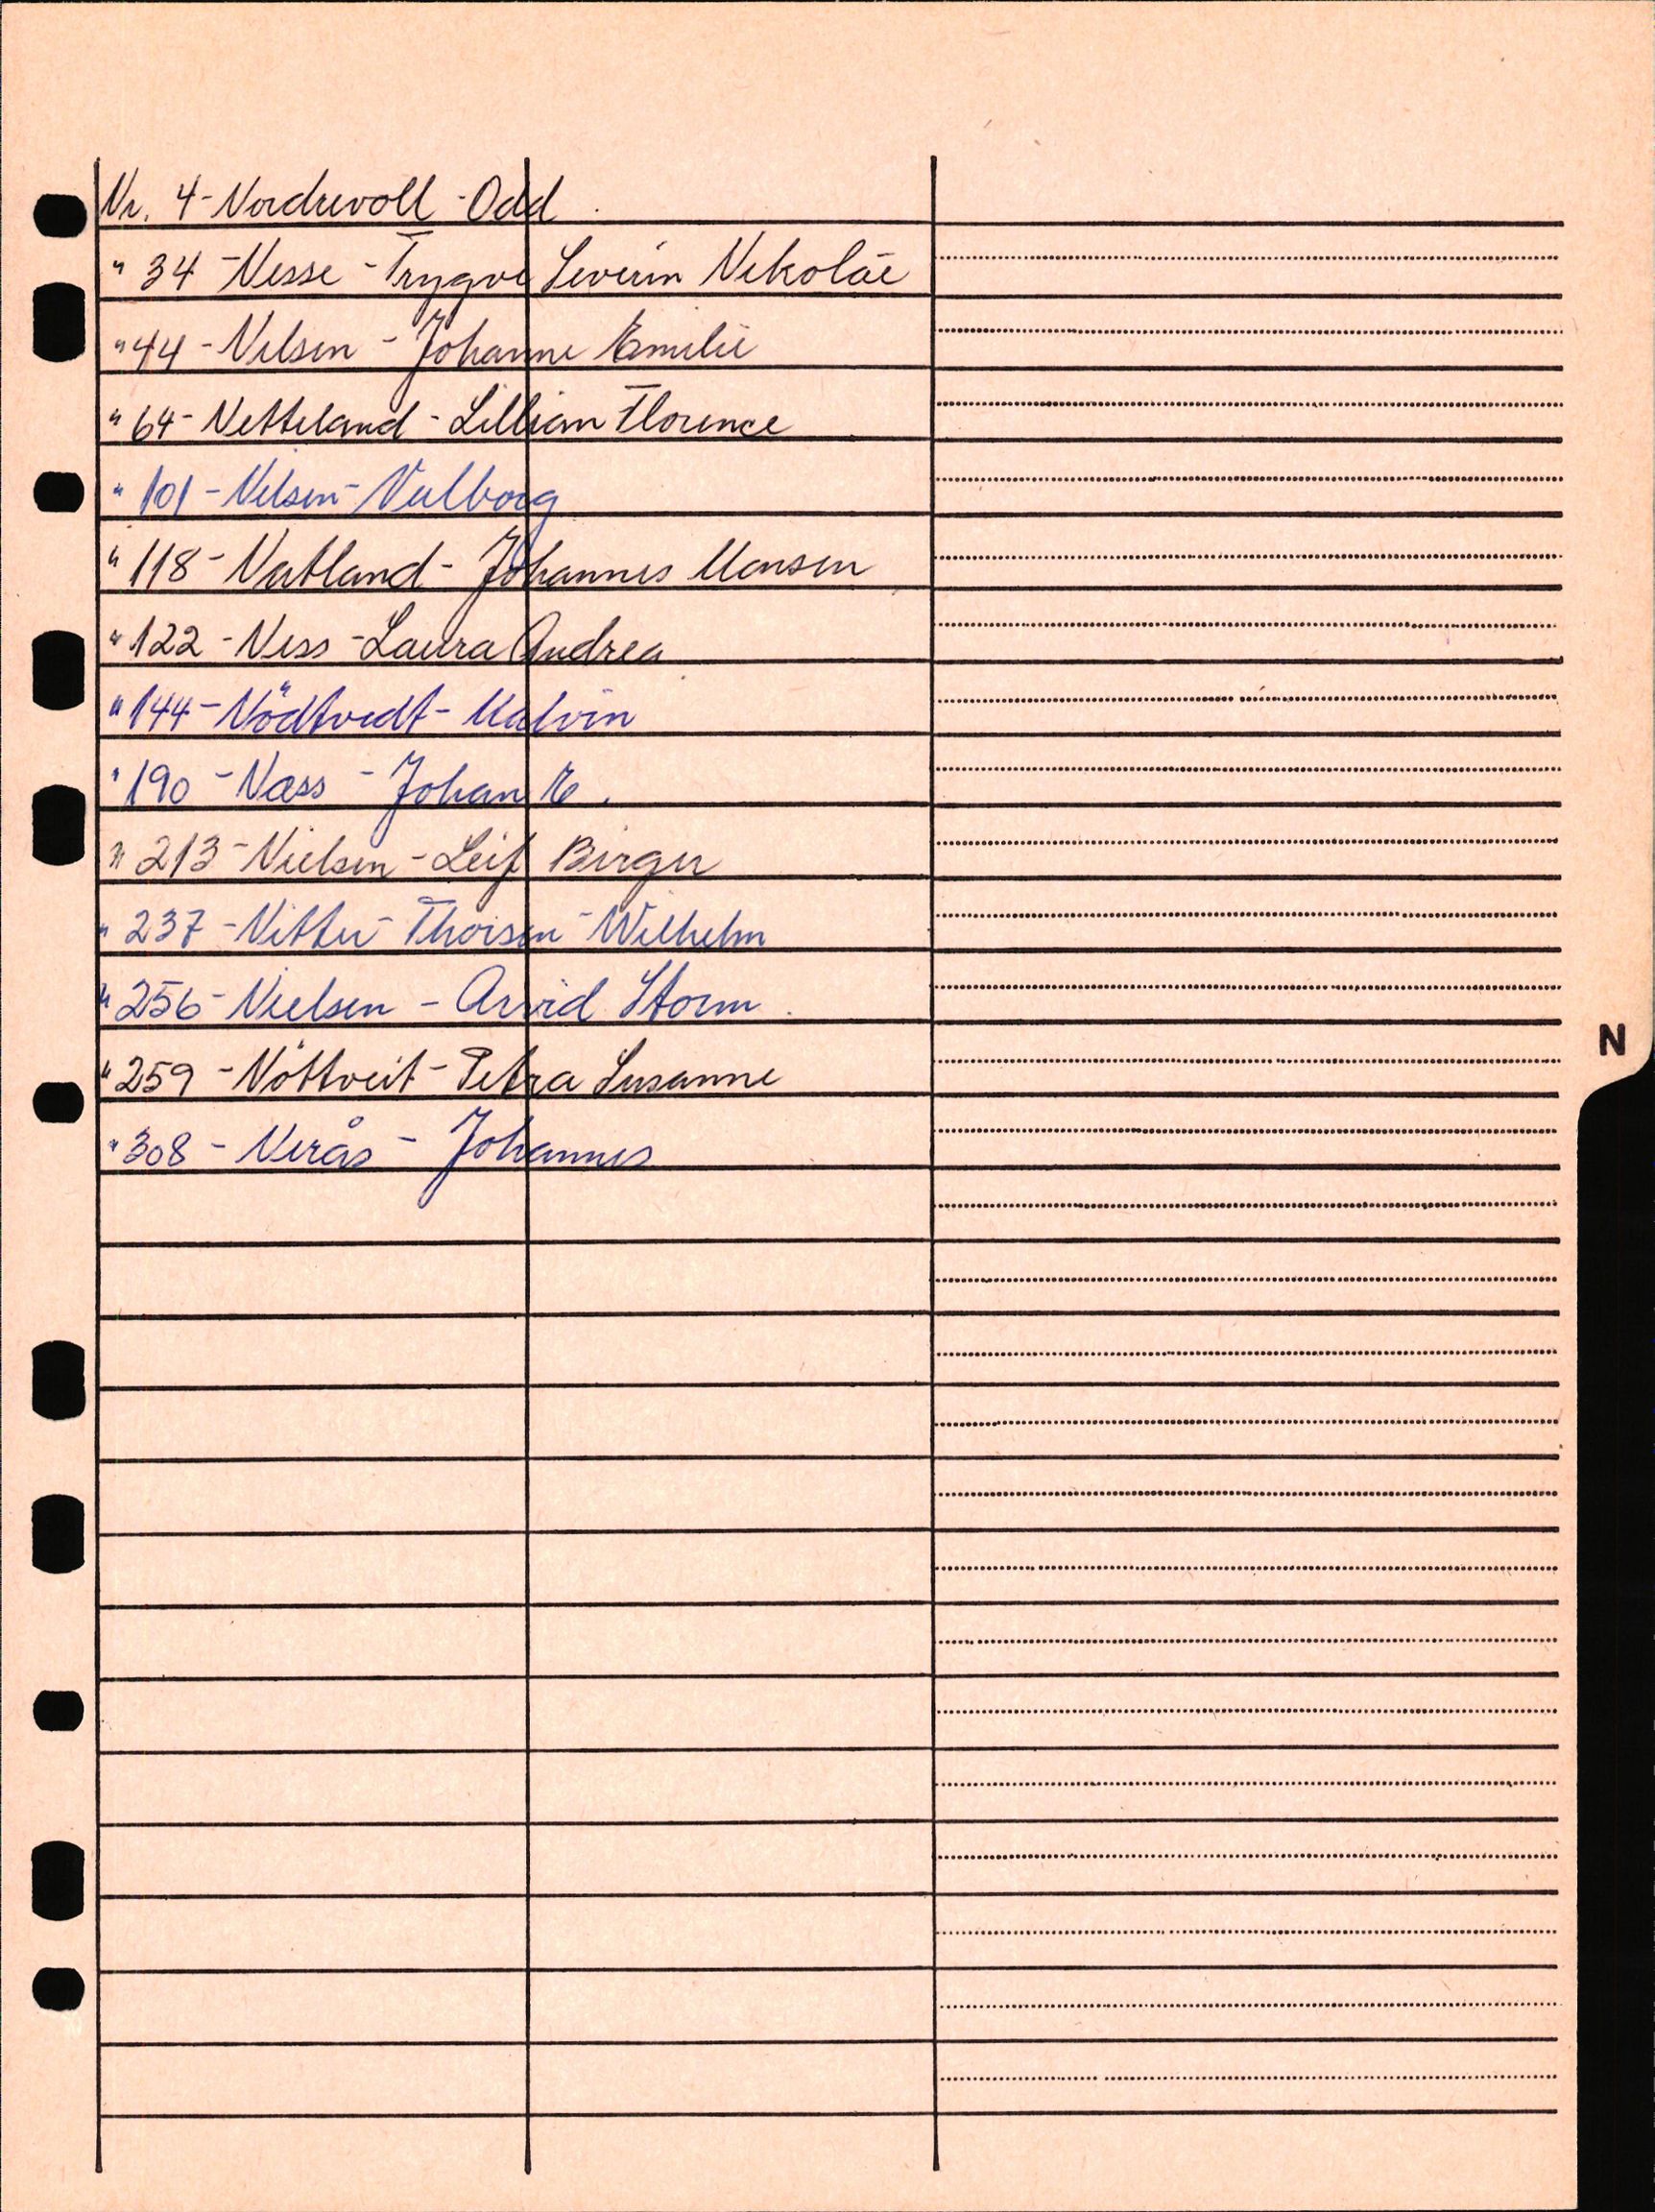 Nr. 4 - Nordrevoll - Odd
" 34 - Nesse - Trygve Severin Nikolai
" 44 - Nilsen - Johanne Emilie
" 64 - Netteland - Lillian Florence
" 101 - Nilsen - Valborg
" 118 - Natland - Johannes Monsen
" 122 - Ness - Laura Andrea
" 144 - Nödtvedt - Malvin
" 190 - Næss - Johan E.
" 213 - Nielsen - Leif Birger
" 237 - Nitter - Thorsen - Wilhelm
" 256 - Nielsen - Arvid Storm
" 259 - Nöttveit - Petra Susanne
N
" 308 - Nerås - Johannes